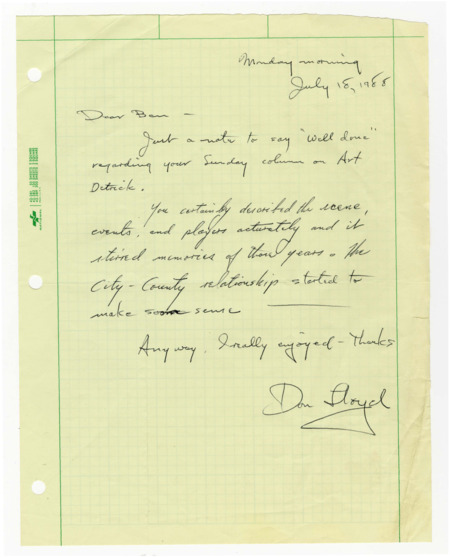 Monday morning
July 18, 1988
Dear Ben –
Just a note to say "well done"
regarding your Sunday column on Art
Detrick.
You certainly described the scene,
events, and players accurately and it
stirred memories of those years – the
City-County relationship started to
make sense
Anyway, I really enjoyed – Thanks
Don Lloyd